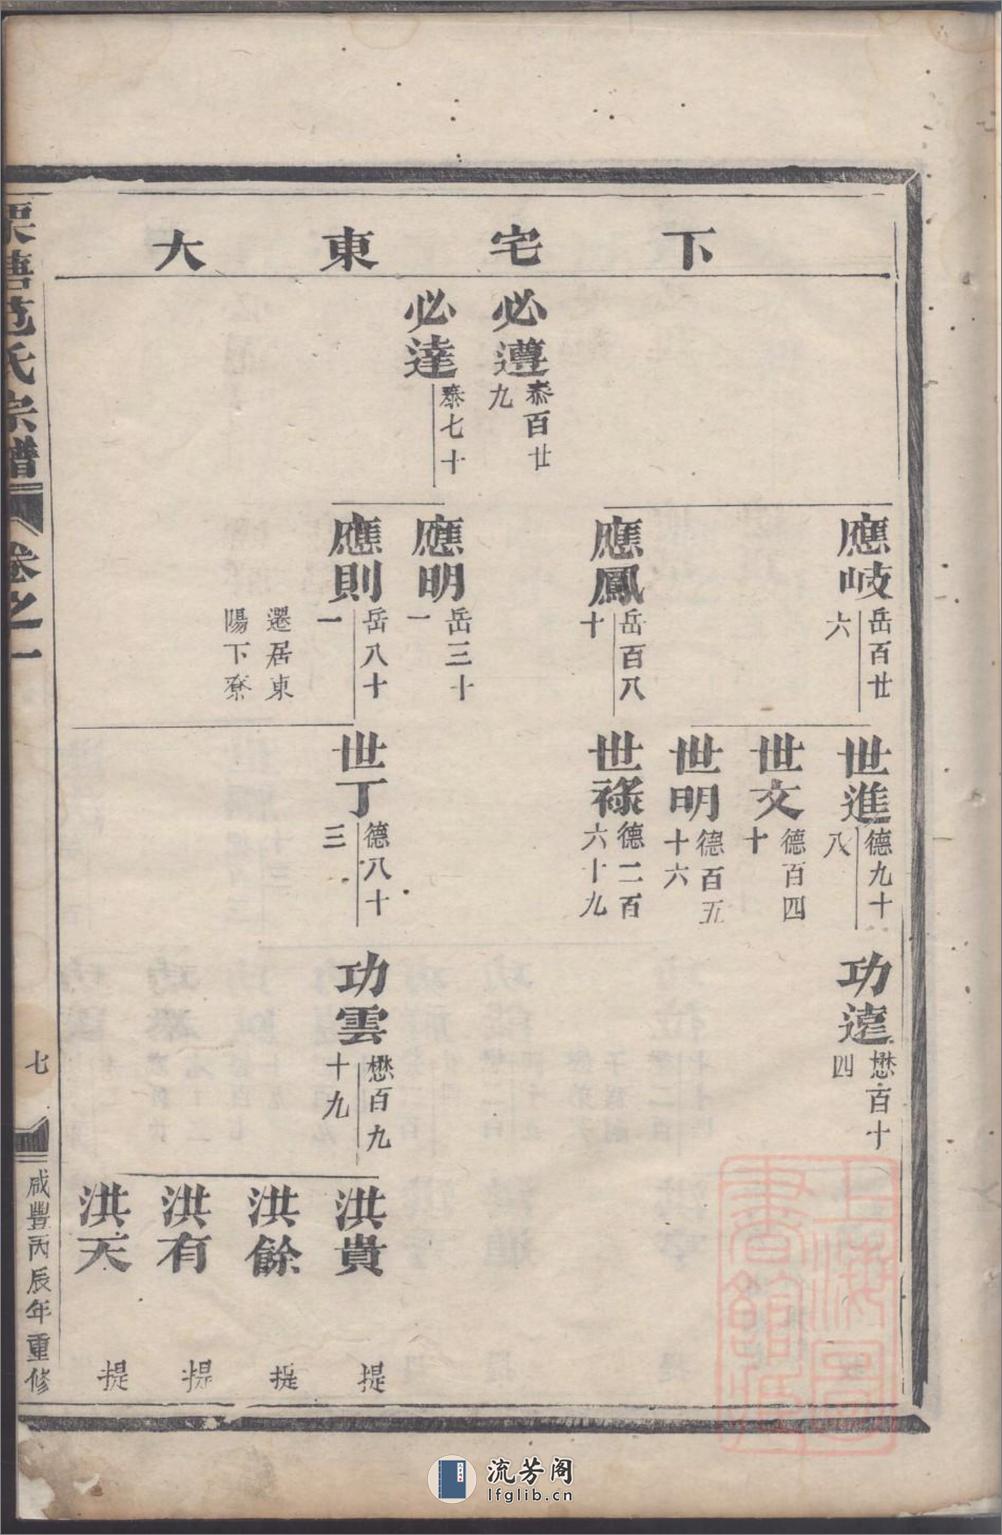 下宅東大
必遵
泰百廿
九
必達
泰七十
應岐
岳百廿
六
應鳳
岳百八
十
應明
岳三十
一
應則
岳八十
一
遷居東
陽下寮
世進
德九十
八
世文
德百四
十
世明
德百五
十六
世祿
德二百
六十九
世丁
德八十
三
功逺
懋百十
四
功雲
懋百九
十九
洪貴 提
洪餘 提
洪有 提
洪天 提
范氏宗譜
卷之一
七
咸豐丙辰年重修
上海圖
書館藏
流芳阁
lfglib.cn